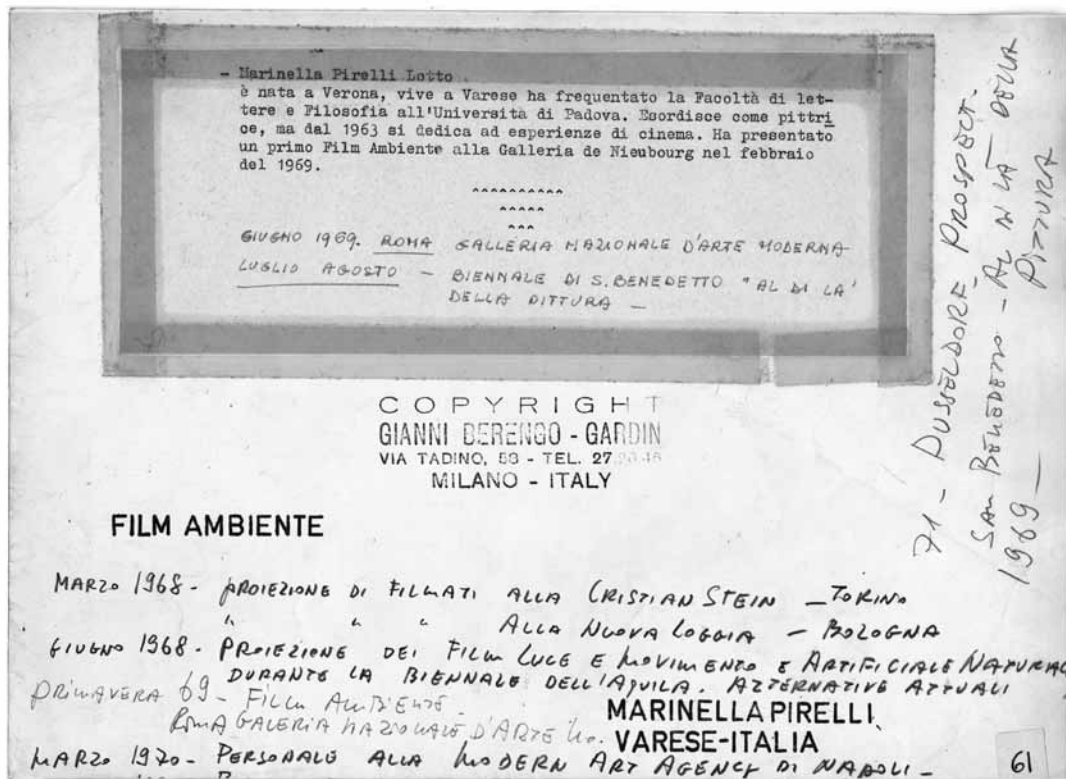 - Marinella Pirelli Lotto
è nata a Verona, vive a Varese ha frequentato la Facoltà di let-
tere e Filosofia all'Università di Padova. Esordisce come pittri
ce, ma dal 1963 si dedica ad esperienze di cinema. Ha presentato
un primo Film Ambiente alla Galleria de Nieubourg nel febbraio
del 1969.
^^^^^^^^^^
^^^^^
^^^
GIUGNO 1969. ROMA GALLERIA NAZIONALE D'ARTE MODERNA
LUGLIO AGOSTO - BIENNALE DI S. BENEDETTO "AL DI LA'
DELLA PITTURA -
71 - DUSSELDORF - PROSPECT -
SAN BENEDETTO - AL DI LÀ DELLA
1969 - PITTURA
COPYRIGHT
GIANNI BERENGO - GARDIN
VIA TADINO, 53 - TEL. 27
MILANO - ITALY
FILM AMBIENTE
MARZO 1968 - PROIEZIONE DI FILMATI ALLA CRISTIAN STEIN - TORINO
" " " ALLA NUOVA LOGGIA - BOLOGNA
GIUGNO 1968 - PROIEZIONE DEI FILM LUCE E MOVIMENTO E ARTIFICIALE NATURAL
DURANTE LA BIENNALE DELL'AQUILA. ALTERNATIVE ATTUALI
PRIMAVERA 69 - FILM AMBIENTE -
ROMA GALERIA NAZIONALE D'ARTE Mo.
MARINELLA PIRELLI
VARESE-ITALIA
MARZO 1970 - PERSONALE ALLA MODERN ART AGENCY DI NAPOLI -
61